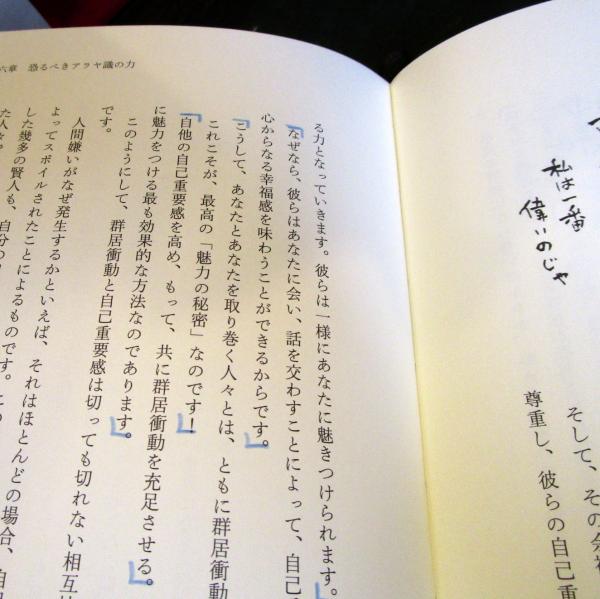 私は一番
偉いのじゃ
そして、その余
尊重し、彼らの自己重
六章 恐るべきアラヤ識の力
る力となっていきます。彼らは一様にあなたに魅きつけられます。
なぜなら、彼らはあなたに会い、話を交わすことによって、自己
心からなる幸福感を味わうことができるからです。
こうして、あなたとあなたを取り巻く人々とは、ともに群居衝動
これこそが、最高の「魅力の秘密」なのです！
自他の自己重要感を高め、もって、共に群居衝動を充足させる。
に魅力をつける最も効果的な方法なのであります。
このようにして、群居衝動と自己重要感は切っても切れない相互
です。
人間嫌いがなぜ発生するかといえば、それはほとんどの場合、自
よってスポイルされたことによるものです。この
した幾多の賢人も、自分の